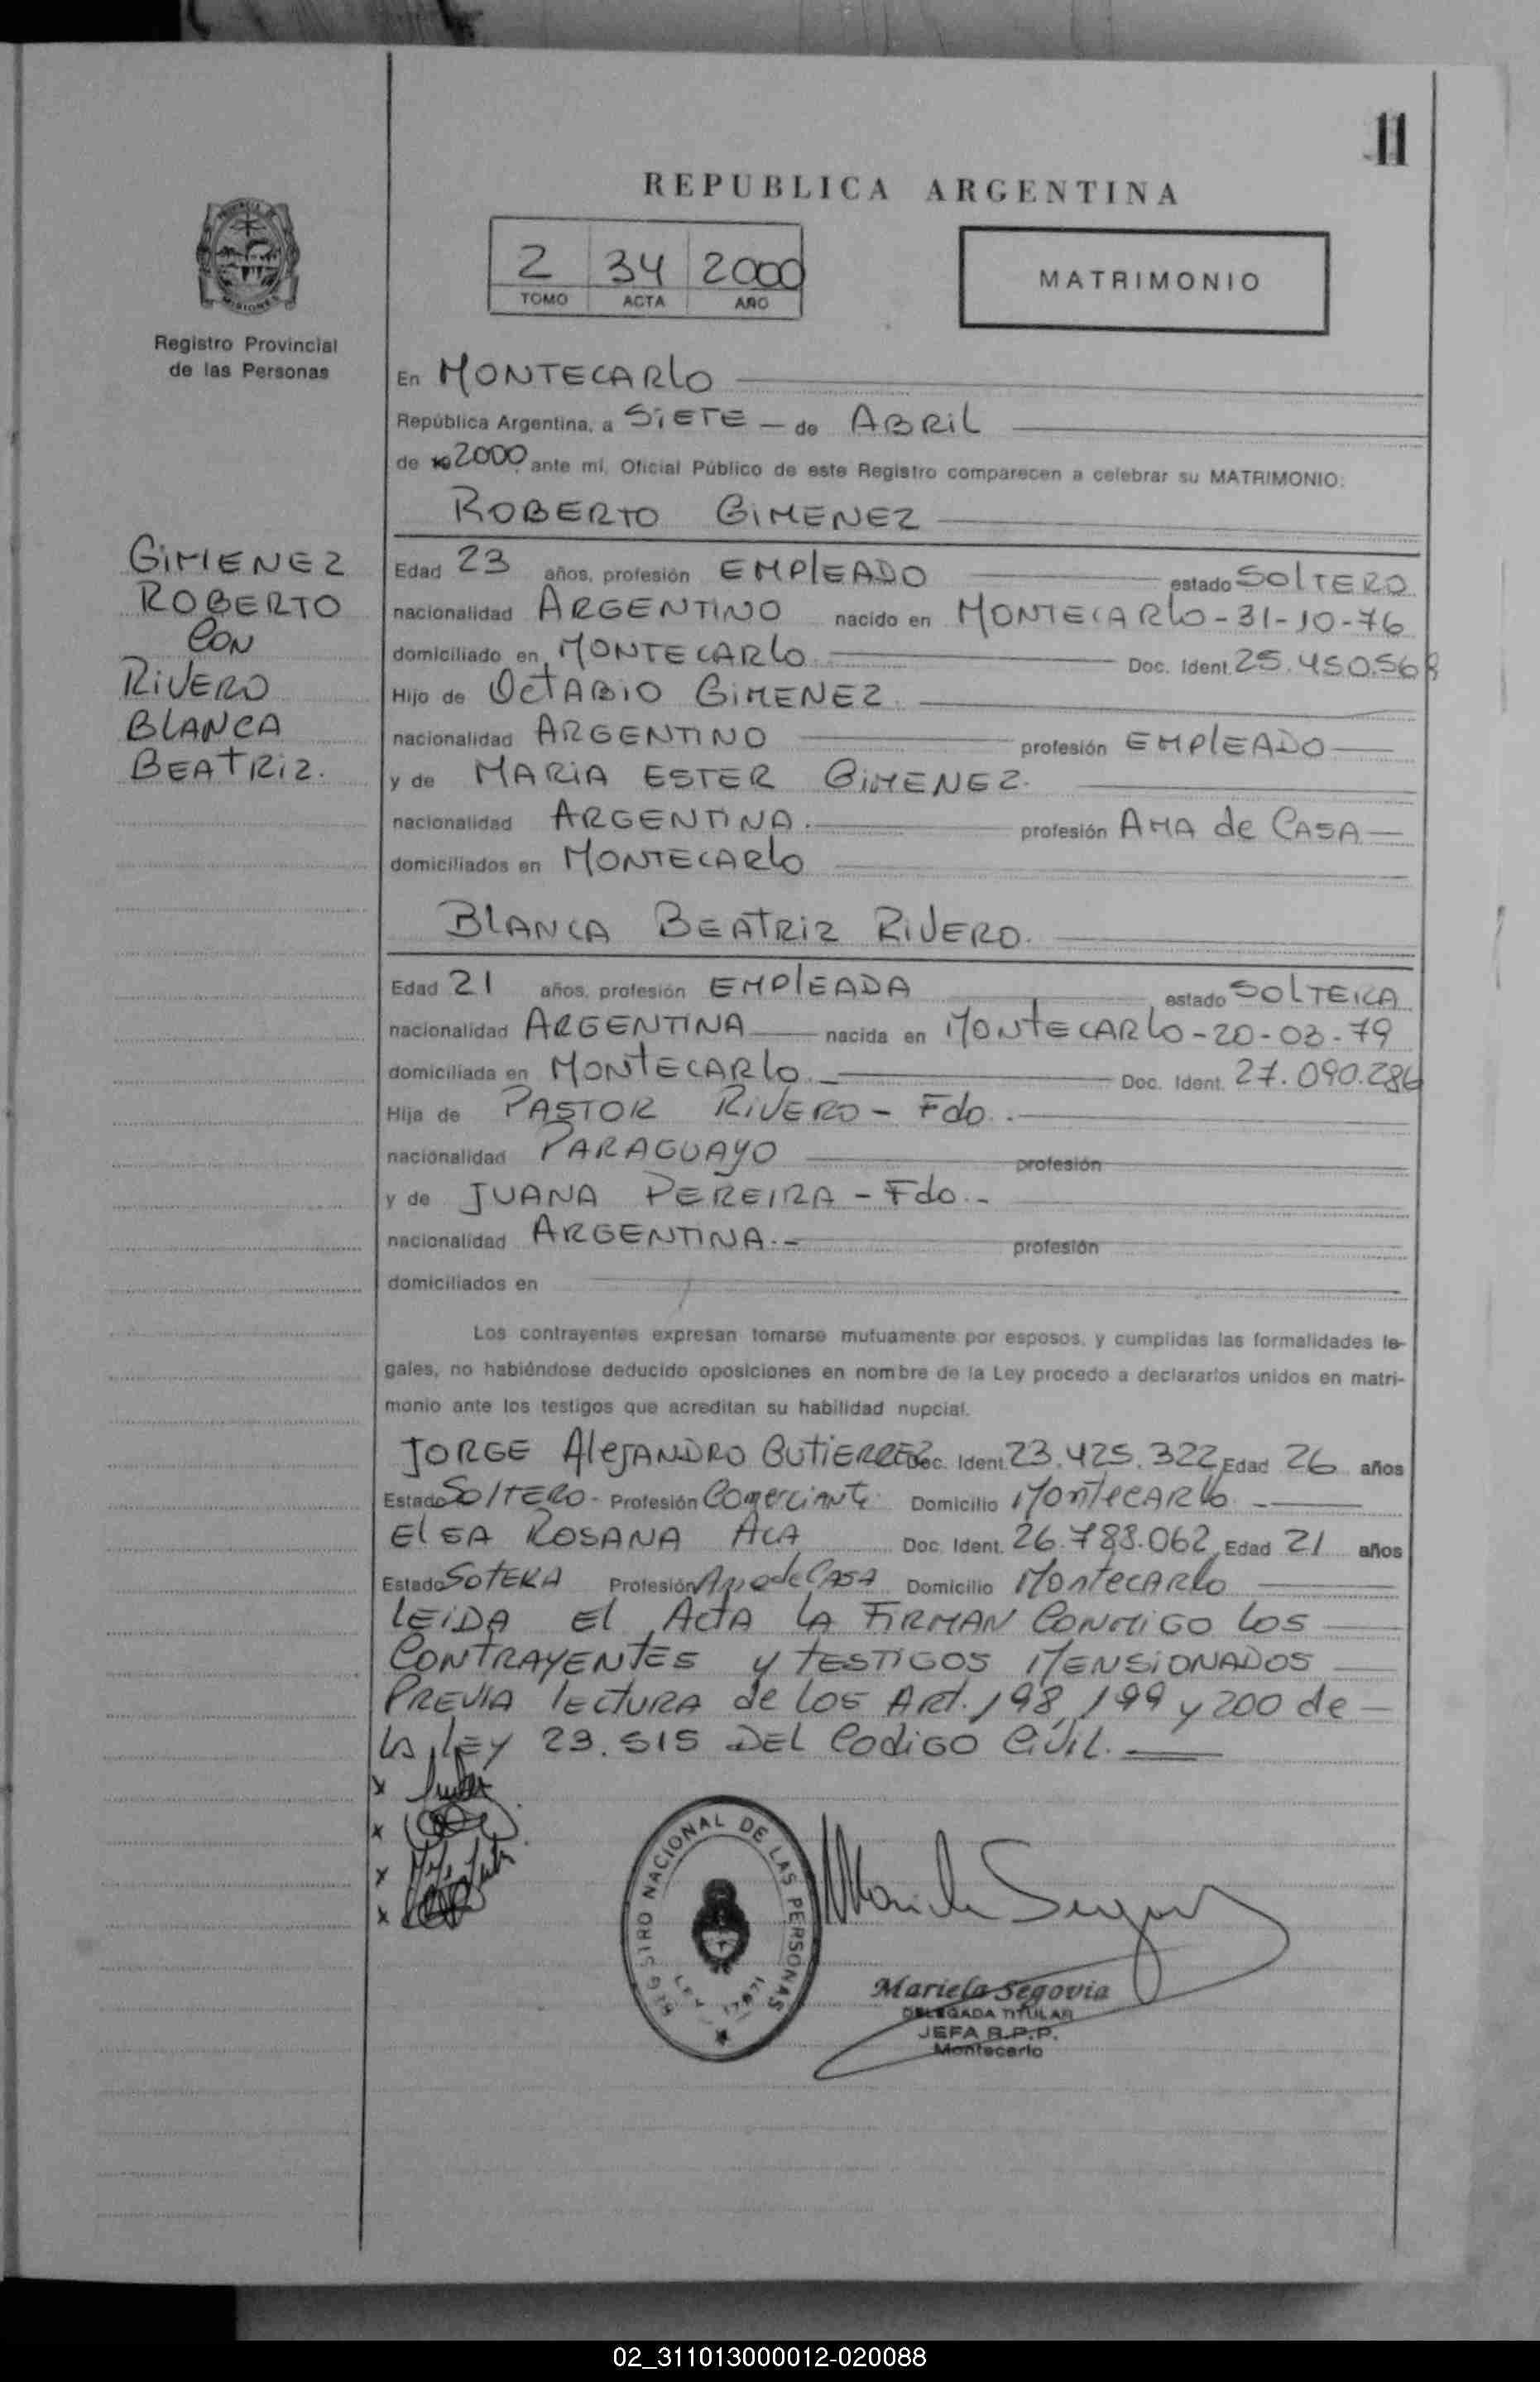 11
REPUBLICA ARGENTINA
2 34 2000
TOMO ACTA AÑO
MATRIMONIO
Registro Provincial
de las Personas
En MONTECARLO
República Argentina, a SIETE — de ABRIL
de 19 2000 ante mí, Oficial Público de este Registro comparecen a celebrar su MATRIMONIO:
ROBERTO GIMENEZ
GIMENEZ
ROBERTO
CON
RIVERO
BLANCA
BEATRIZ.
Edad 23 años, profesión EMPLEADO estado SOLTERO
nacionalidad ARGENTINO nacido en MONTECARLO-31-10-76
domiciliado en MONTECARLO Doc. Ident. 25.450.568
Hijo de OCTABIO GIMENEZ.
nacionalidad ARGENTINO profesión EMPLEADO
y de MARIA ESTER GIMENEZ.
nacionalidad ARGENTINA. profesión AMA de CASA
domiciliados en MONTECARLO
BLANCA BEATRIZ RIVERO.
Edad 21 años, profesión EMPLEADA estado SOLTERA
nacionalidad ARGENTINA nacida en MONTECARLO-20-03-79
domiciliada en MONTECARLO Doc. Ident. 27.090.286
Hija de PASTOR RIVERO - Fdo.
nacionalidad PARAGUAYO profesión
y de JUANA PEREIRA - Fdo.-
nacionalidad ARGENTINA.- profesión
domiciliados en
Los contrayentes expresan tomarse mutuamente por esposos, y cumplidas las formalidades le-
gales, no habiéndose deducido oposiciones en nombre de la Ley procedo a declararlos unidos en matri-
monio ante los testigos que acreditan su habilidad nupcial.
JORGE AlEJANDRO GUTIERREZ Doc. Ident. 23.425.322 Edad 26 años
Estado SOLTERO- Profesión Comerciante Domicilio MONTECARLO
ELSA ROSANA Doc. Ident. 26.783.062 Edad 21 años
Estado SOTERA Profesión Ama de CASA Domicilio MONTECARLO
LEIDA El ACTA LA FIRMAN CONMIGO LOS
CONTRAYENTES y TESTIGOS MENSIONADOS
PREVIA lECTURA de LOS ART. 198, 199 y 200 de
LA LEY 23.515 DEL CODIGO CIVIL.
REGISTRO NACIONAL DE LAS PERSONAS
LEY 17671
Mariela Segovia
DELEGADA TITULAR
JEFA R.P.P.
Montecarlo
02_311013000012-020088